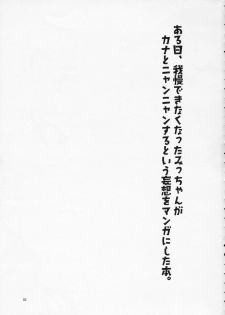 ある日、我慢できなくなったみっちゃんが
カナとニャンニャンするという妄想をマンガにした本。